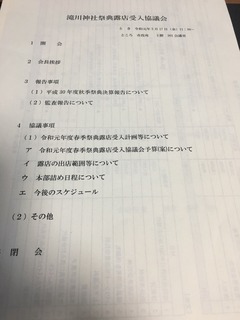 滝川神社祭典露店受入協議会
と き 令和元年5月17日(金)
ところ
1 開 会
2 会長挨拶
3 報告事項
(1)平成30年度秋季祭典決算報告について
(2)監査報告について
4 協議事項
(1)令和元年度春季祭典露店受入計画等について
ア 令和元年度春季祭典露店受入協議会予算(案)について
イ 露店の出店範囲等について
ウ 本部詰め日程について
エ 今後のスケジュール
(2)その他
閉 会